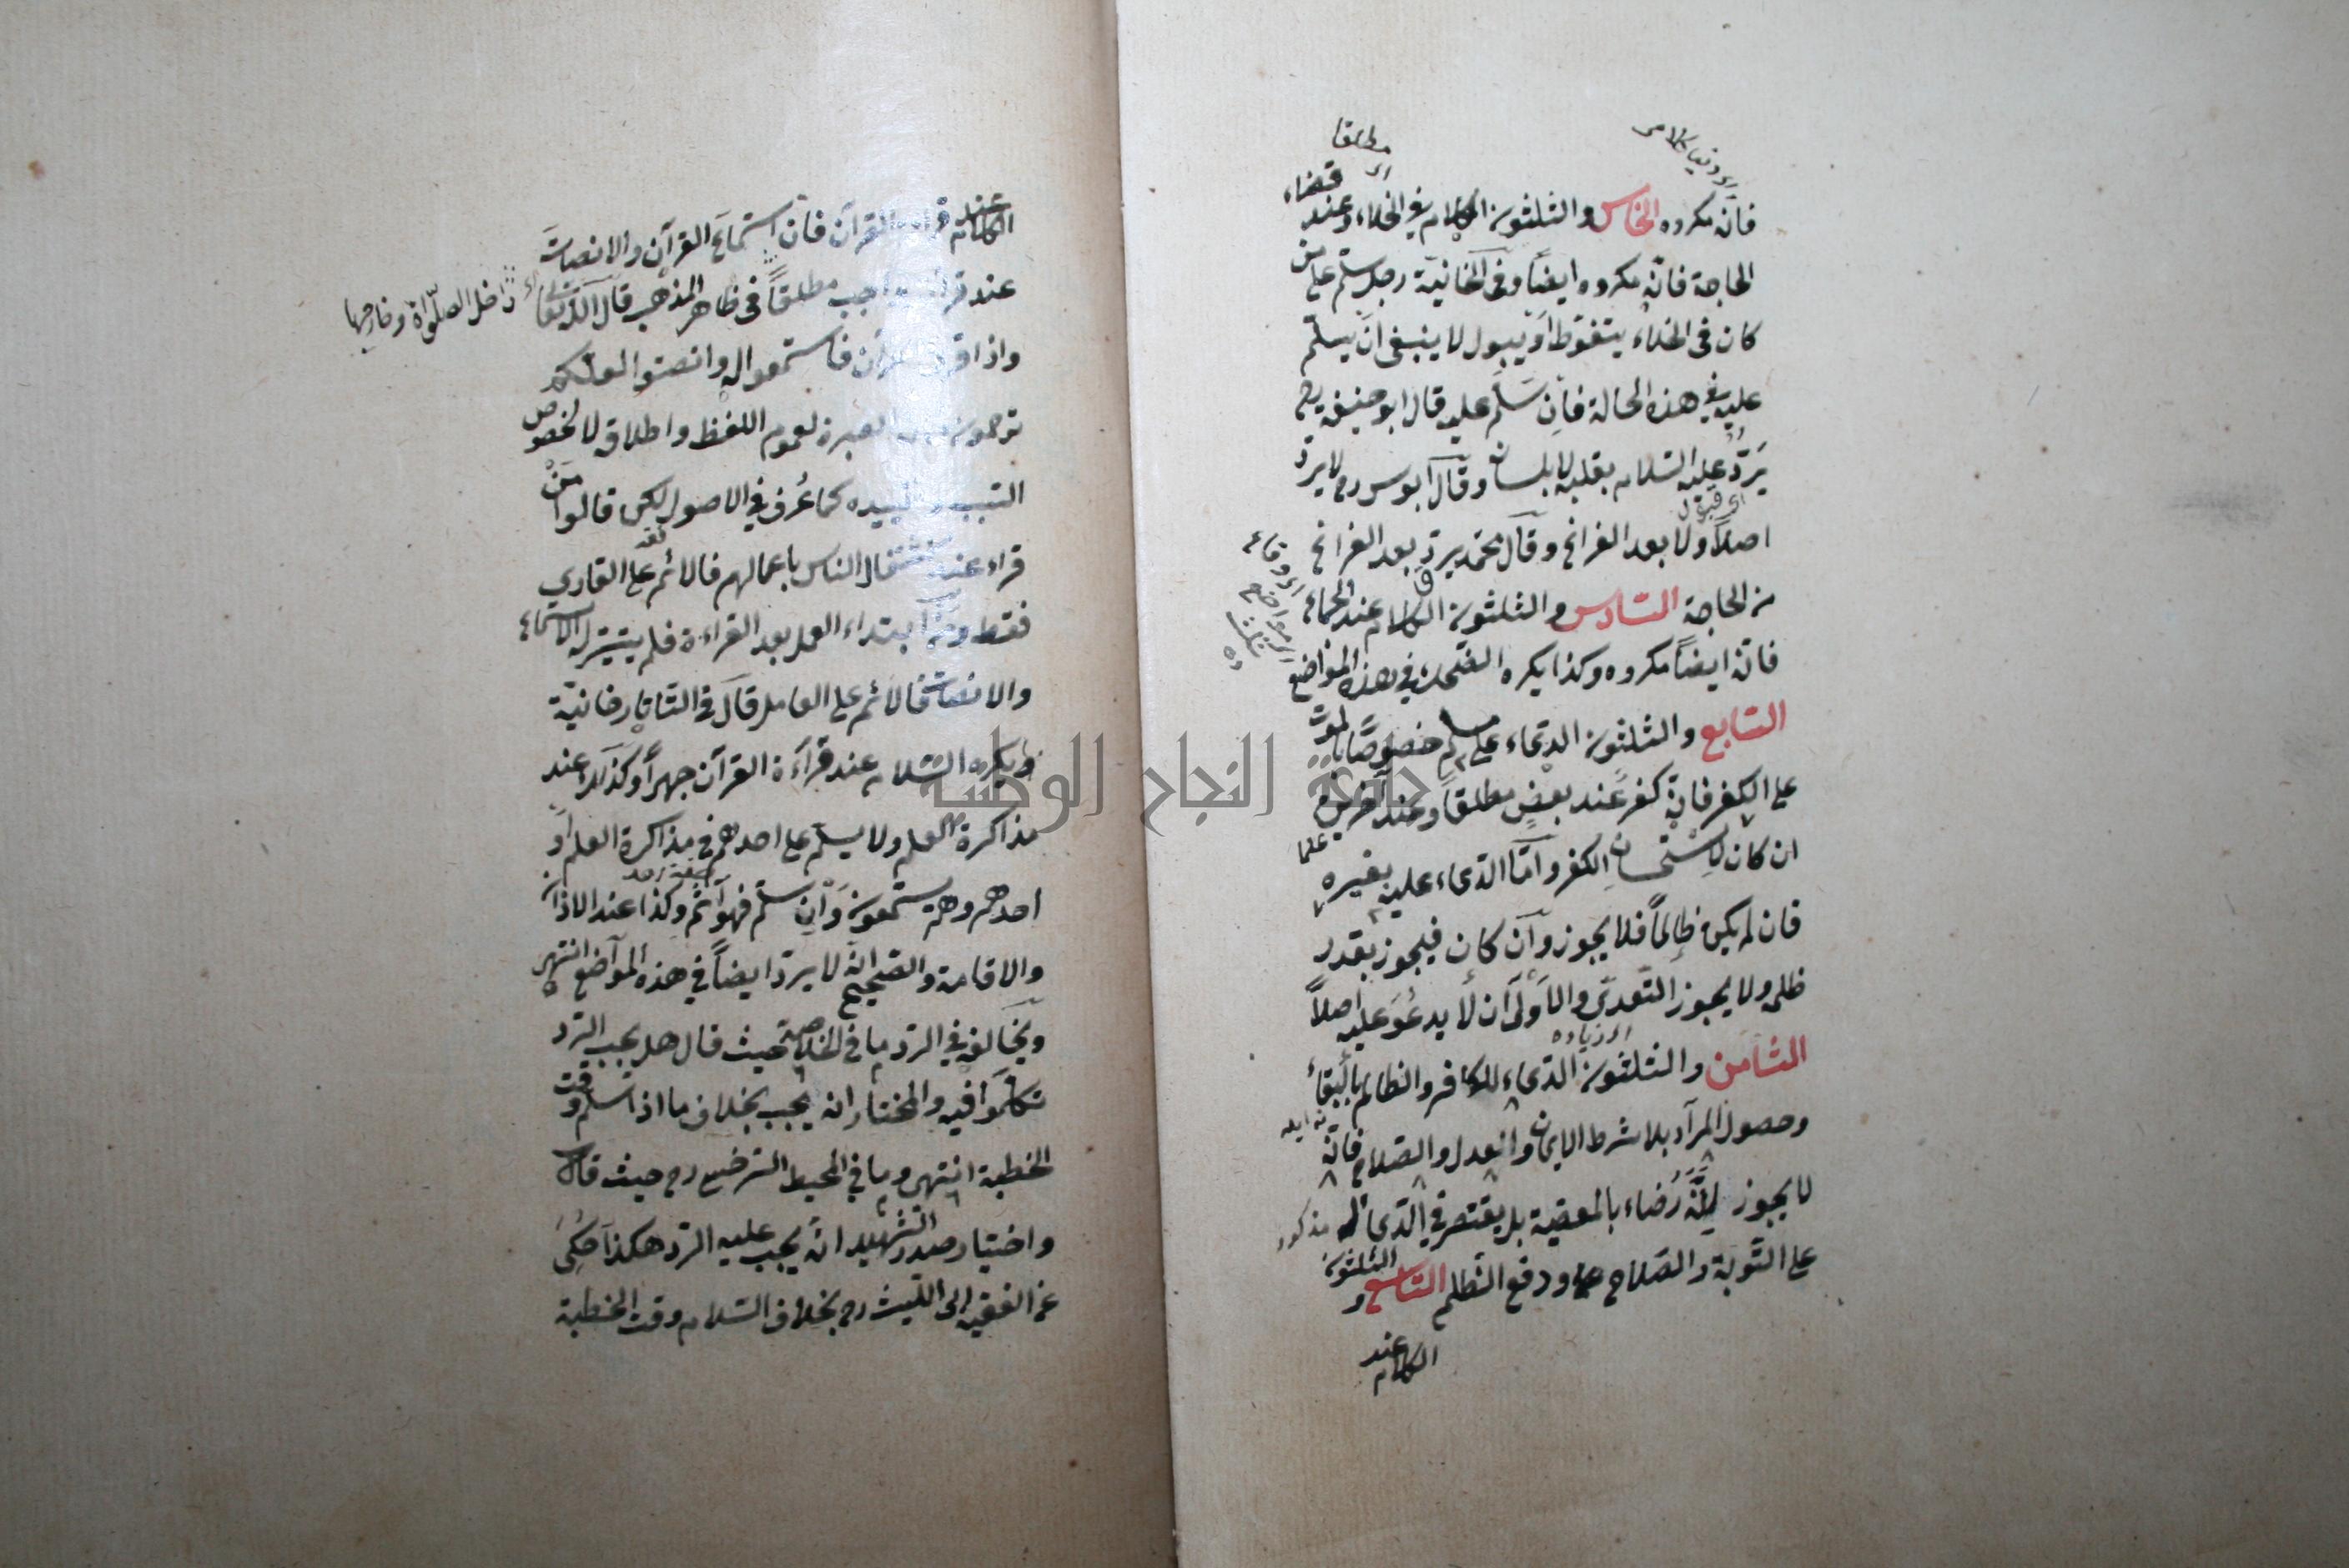 اى دنيا كلامى
اى مطلقا
فانه مكروه الخامس والثلثون الكلام في الخلاء وعند قضاء
الحاجة فانه مكروه ايضاً وفى الخانية رجل سلم على من
كان فى الخلاء يتغوط او يبول لا ينبغى ان يسلم
عليه في هذه الحالة فان سلم عليه قال ابو حنيفة رح
يَرُدُّ عليه السلام بقلبه لا بلسانه وقال ابو يوسف رح لا يرد
اصلاً ولا بعد الفراغ وقال محمد يرد بعد الفراغ
من الحاجة السادس والثلثون الكلام عند الجماع
فانه ايضاً مكروه وكذا يكره الضحك في هذه المواضع
السابع والثلثون الدعاء على مسلم خصوصًا بالموت
على الكفر فانه كفر عند بعض مطلقاً وعند آخرين
ان كان لاستحسان الكفر واما الدعاء عليه بغيره
فان لم يكن ظالماً فلا يجوز وان كان فيجوز بقدر
ظلمه ولا يجوز التعدى والاولى ان لا يدعو عليه اصلاً
اى زياده
الثامن والثلثون الدعاء للكافر والظالم بالبقاء
وحصول المراد بلا شرط الايمان والعدل والصلاح فانه
لا يجوز لانه رضاء بالمعصية بل يقتصر في الدعاء له
مذكور
على التوبة والصلاح ودفع الظلم التاسع والثلثون
الكلام عند
الكلام عند قراءة القرآن فان استماع القرآن والانصات
اى داخل الصلوة وخارجها
عند قراءته واجب مطلقاً فى ظاهر المذهب قال الله تعالى
واذا قرئ القرآن فاستمعوا له وانصتوا لعلكم
ترحمون العبرة لعموم اللفظ واطلاقه لا لخصوص
السبب وتقييده كما عُرف في الاصول لكن قالوا من
قراء عند اشتغال الناس باعمالهم فالاثم على القارى
فقط ومن ابتداء العمل بعد القراءة فلم يتيسر له الاستماع
والانصات فالاثم على العامل قال فى التاتارخانية
ويكره السلام عند قراءة القرآن جهراً وكذلك عند
مذاكرة العلم ولا يسلم على احدهم في مذاكرة العلم او
احدهم وهم يستمعون وان سلم فهو آثم وكذا عند الاذان
والاقامة والصحيح انه لا يرد ايضاً في هذه المواضع انتهى
ويخالفه في الرد ما فى الخلاصة حيث قال هل يجب الرد
تكلموا فيه والمختار انه يجب بخلاف ما اذا سلم وقت
الخطبة انتهى وما في المحيط السرخسى رح حيث قال
واختيار صدر الشهيد انه يجب عليه الرد هكذا حُكى
عن الفقيه ابى الليث رح بخلاف السلام وقت الخطبة
جامعة النجاح الوطنية